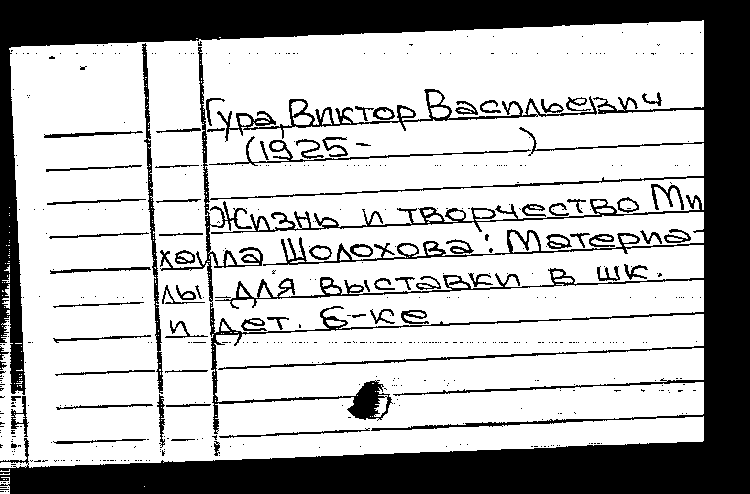 Гура, Виктор Васильевич
(1925-          )
Жизнь и творчество Ми
хаила Шолохова: Материа-
лы для выставки в шк.
и дет. б-ке.